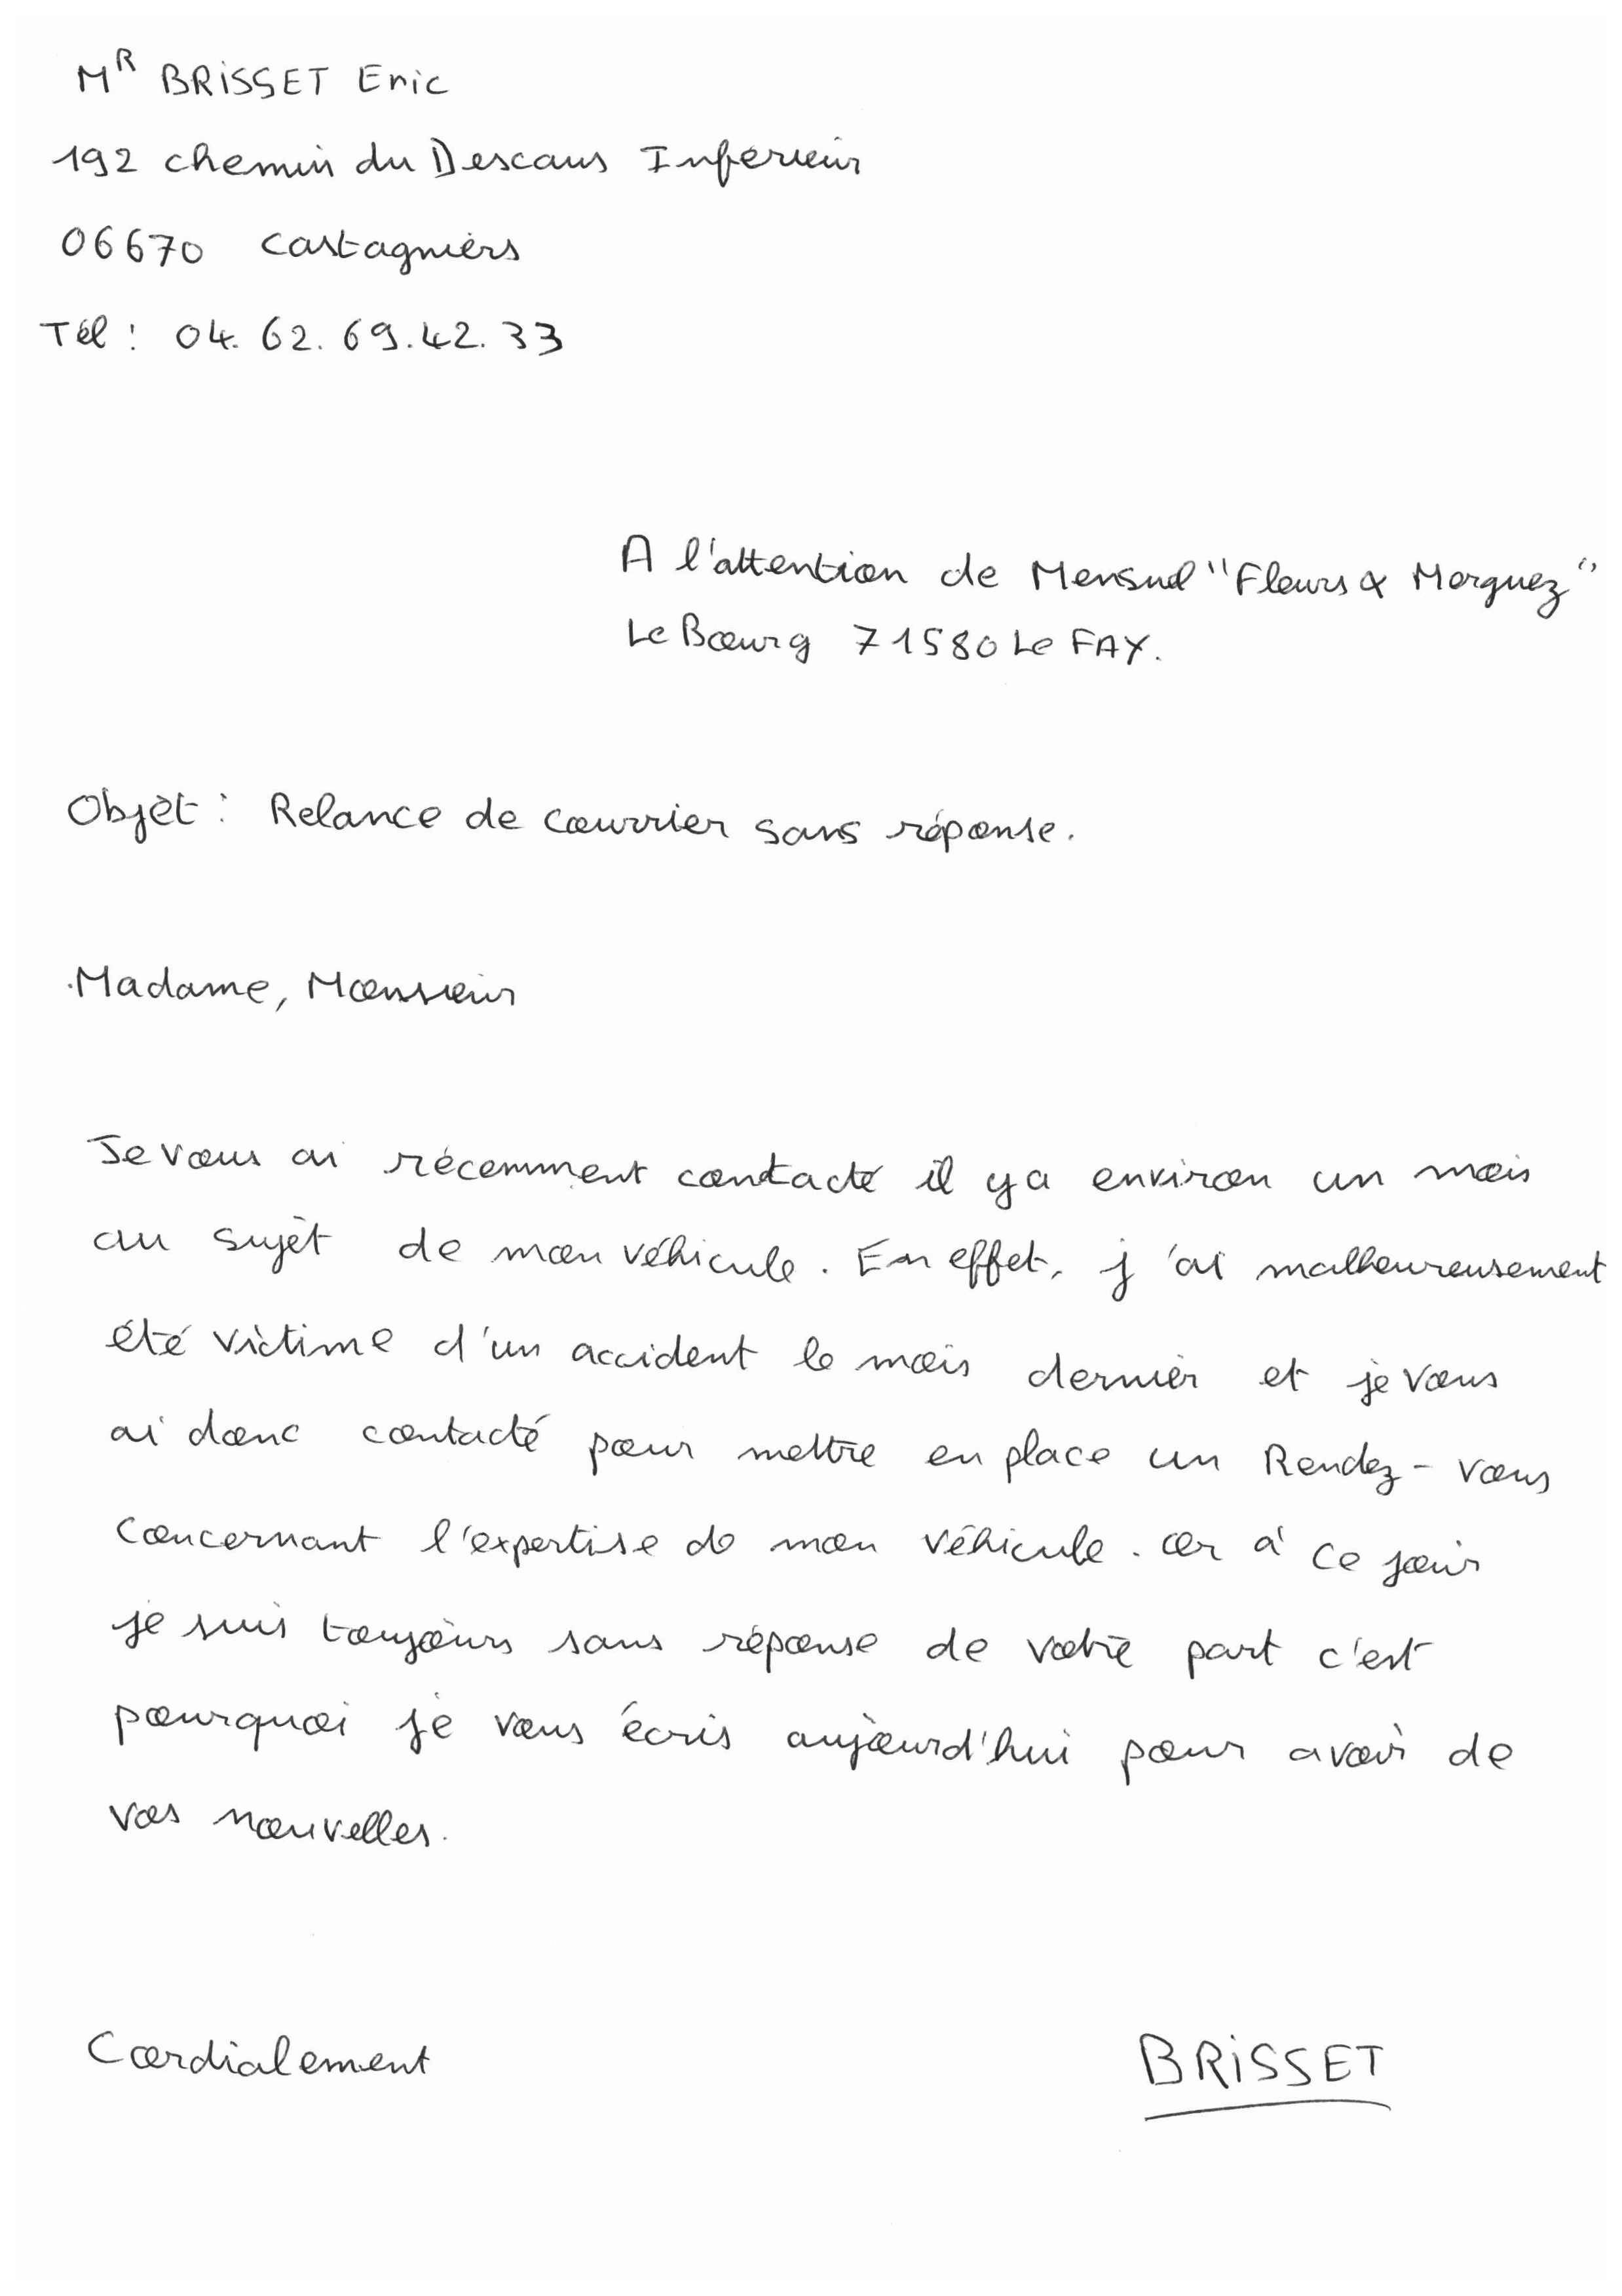 MR BRISSET Eric
192 chemin du Descaus Inférieur
06670 Castagniers
Tél : 04. 62. 69. 42. 33
A l'attention de Mensuel "Fleurs & Morguez"
Le Bourg 71580 Le FAY.
Objet : Relance de courrier sans réponse.
Madame, Monsieur
Je vous ai récemment contacté il y a environ un mois
au sujet de mon véhicule. En effet, j'ai malheureusement
été victime d'un accident le mois dernier et je vous
ai donc contacté pour mettre en place un Rendez-vous
concernant l'expertise de mon véhicule. or à ce jour
je suis toujours sans réponse de votre part c'est
pourquoi je vous écris aujourd'hui pour avoir de
vos nouvelles.
Cordialement
BRISSET